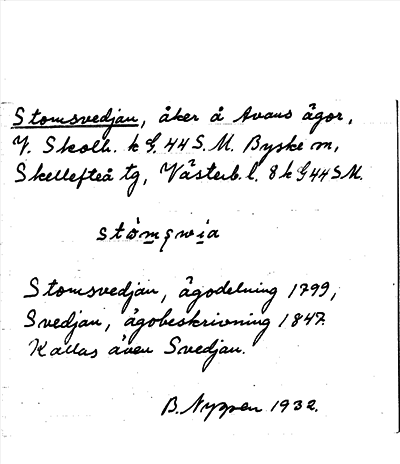 Stomsvedjan, åker å Avans ägor,
V. Skolh. k G. 44 S.M. Byske m,
Skellefteå tg, Västerb. l. 8 k G 44 S.M.
Stomsvedjan, ägodelning 1799,
Svedjan, ägobeskrivning 1847.
Kallas även Svedjan.
B. Nyppen 1932.